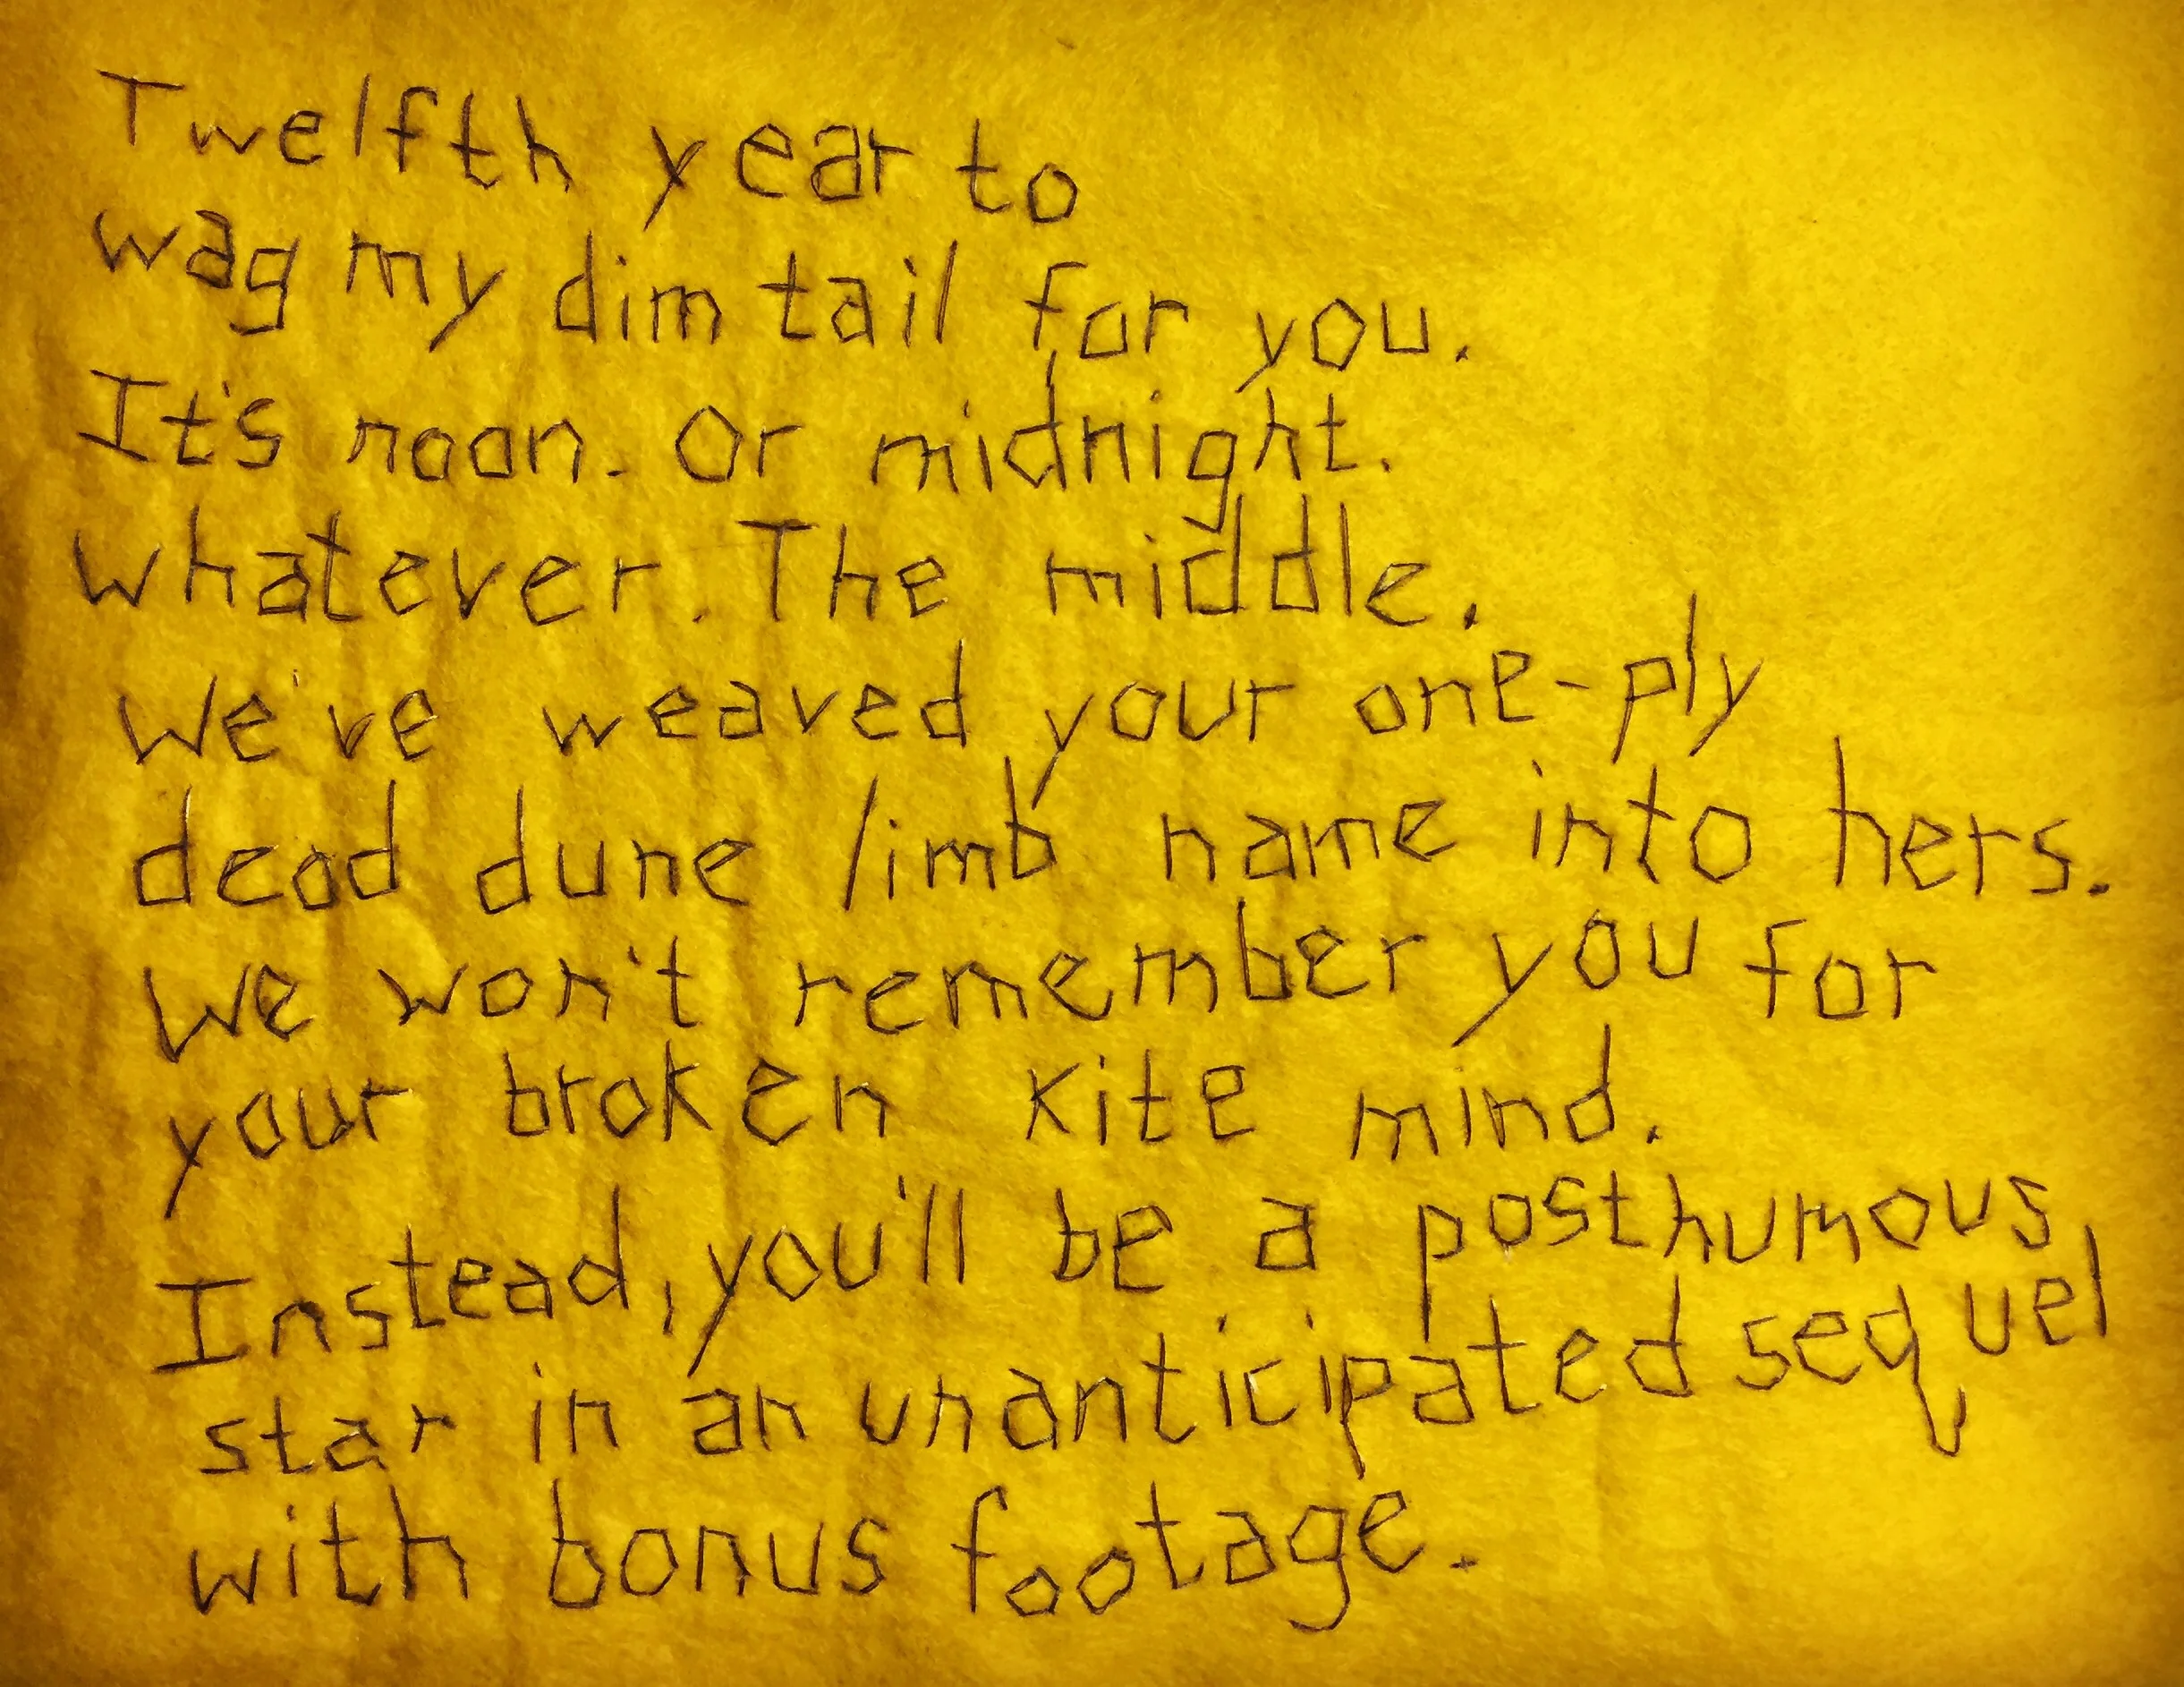 Twelfth year to
wag my dim tail for you.
It's noon. Or midnight.
Whatever. The middle.
We've weaved your one-ply
dead dune limb name into hers.
We won't remember you for
your broken kite mind.
Instead, you'll be a posthumous,
star in an unanticipated sequel
with bonus footage.